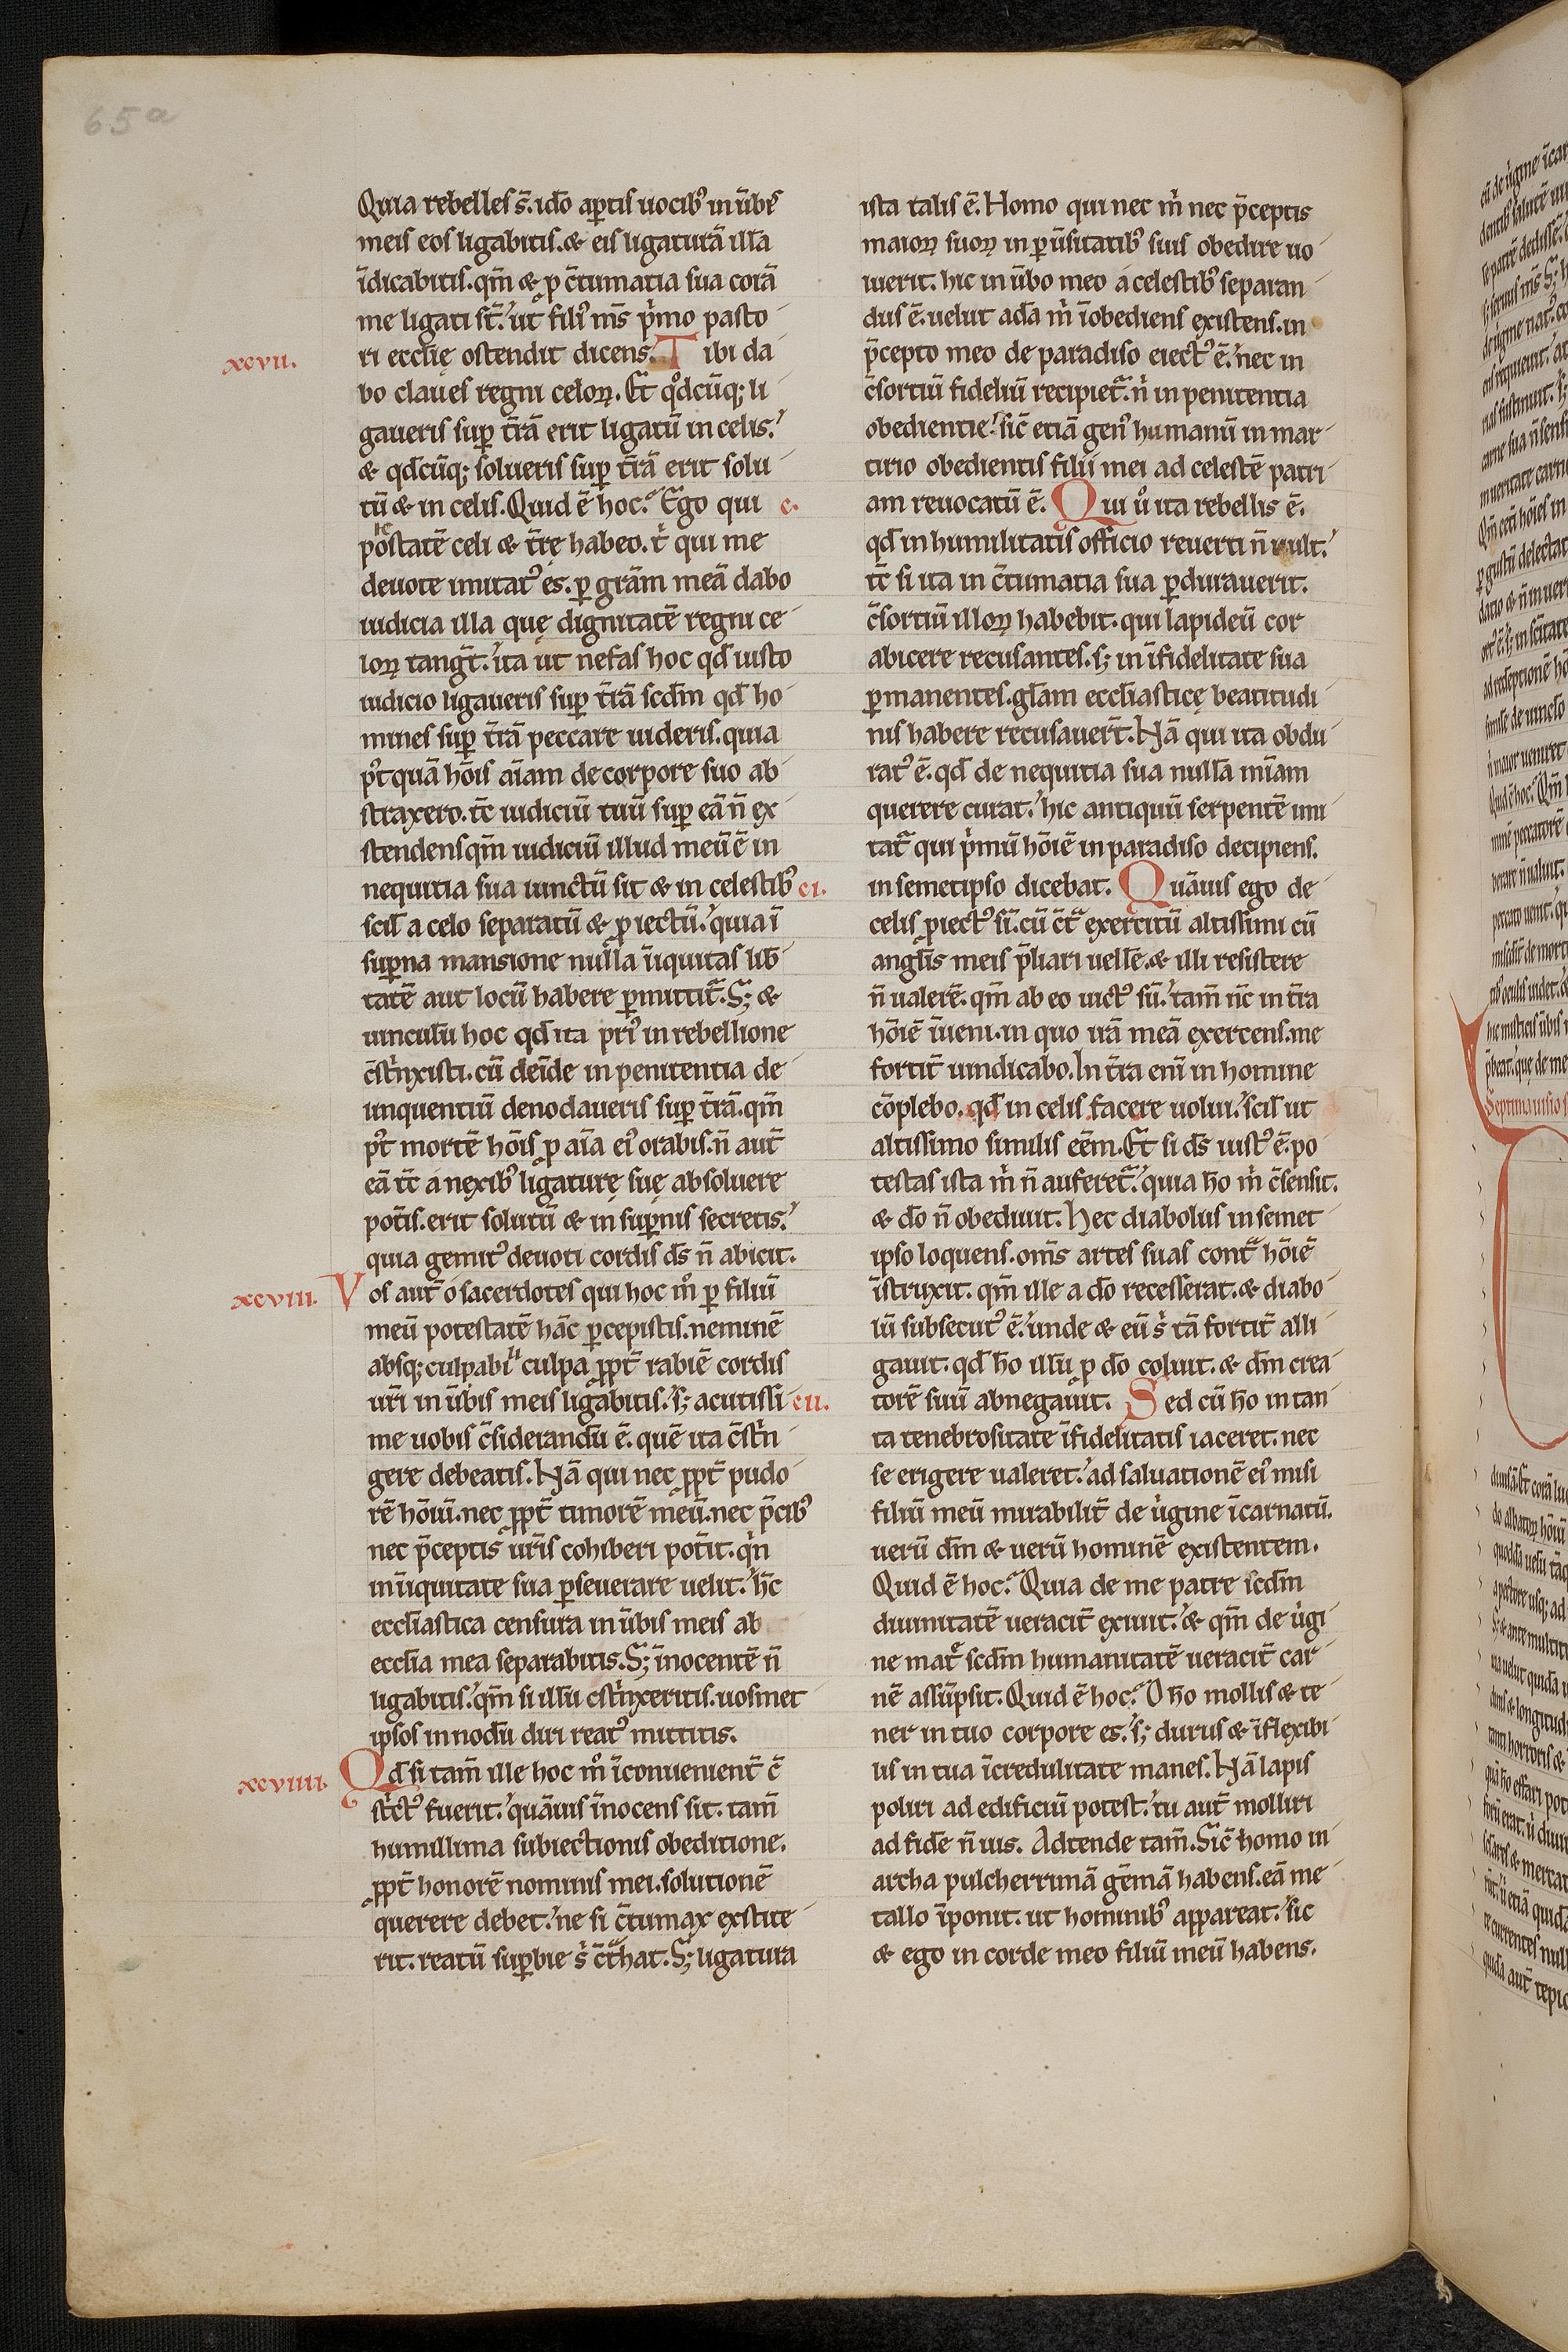 65a
Quia rebelles s̄. idō aꝑtis uocibꝰ in ūbē
meis eos ligabitis. & eis ligaturā illā
īdicabitis. qm̄ & ꝓ c̄tumatia sua corā
me ligati st̄. ut filiꝰ ms̄ pͥmo pasto
xcvii. ri eccl̄ię ostendit dicens. Tibi da
bo claues regni celoꝝ. Et qͦdcūq; li
gaueris suꝑ t̄rā erit ligatū in celis.
& qd̄cūq; solueris suꝑ t̄rā erit solu
tū & in celis. Quid ē hoc. Ego qui
potestatē celi & t̄rę habeo. tͥ qui me
deuote imitatꝰ es. ꝑ gr̄am meā dabo
iudicia illa quę dignitatē regni ce
loꝝ tangt̄. ita ut nefas hoc qd̄ iusto
iudicio ligaueris suꝑ t̄rā scdm̄ qd̄ ho
mines suꝑ t̄rā peccare uideris. quia
pꝰtquā hōis aīam de corpore suo ab
straxero. tc̄ iudiciū tuū suꝑ eā n̄ ex
stendens qm̄ iudiciū illud meū ē in
nequitia sua iunctū sit & in celestibꝰ
scil̄ a celo separatū & ꝓiectū. quia ī
suꝑna mansione nulla īiquitas lib̄
tatē aut locū habere ꝑmittit̄. S; &
uinculū hoc qd̄ ita priꝰ in rebellione
c̄stͥnxisti. cū deīde in penitentia de
linquentiū denodaueris suꝑ t̄rā. qm̄
pꝰt mortē hōis ꝓ aīa eiꝰ orabis. n̄ aut̄
eā tc̄ a nexibꝰ ligaturę suę absoluere
pot̄is. erit solutū & in suꝑnis secretis.
quia gemitꝰ deuoti cordis ds̄ n̄ abicit.
xcviii. Vos aut̄ o sacerdotes qui hoc mͦ ꝑ filiū
meū potestatē hāc ꝑcepistis. neminē
absq; culpabili culpa ꝓpt̄ rabiē cordis
ur̄i in ūbis meis ligabitis. s; acutissi
me uobis c̄siderandū ē. quē ita c̄stͥn
gere debeatis. Nā qui nec ꝓpt̄ pudo
rē hōiū. nec ꝓpt̄ timorē meū. nec p̄cibꝰ
nec p̄ceptis ur̄is cohiberi pot̄it. qͥn
in īiquitate sua ꝑseuerare uelit. hc̄
eccl̄iastica censura in ūbis meis ab
eccl̄ia mea separabitis. S; īnocentē n̄
ligabitis. qm̄ si illū cstͥnxeritis. uosmet
ipsos in nodū duri reatꝰ mittitis.
xcviiii. Qd̄ si tam̄ ille hoc mͦ īconuenient̄ c̄
stͥctꝰ fuerit. quāuis īnocens sit. tam̄
humillima subiectionis obeditione.
ꝓpt̄ honorē nominis mei. solutionē
querere debet. ne si c̄tumax extite
rit. reatū suꝑbie sͥ c̄tͣhat. S; ligatura
ista talis ē. Homo qui nec mͥ nec p̄ceptis
maioꝝ suoꝝ in ꝑūsitatibꝰ suis obedire uo
luerit. hic in ūbo meo a celestibꝰ separan
dus ē. uelut adā mͥ īobediens existens. in
p̄cepto meo de paradiso eiectꝰ ē. nec in
c̄sortiū fideliū recipiet̄. nͥ in penitentia
obedientie. sic̄ etiā genꝰ humanū in mar
tirio obedientis filii mei ad celestē patri
c. am reuocatū ē. Qui uͦ ita rebellis ē.
qd̄ in humilitatis officio reuerti n̄ uult.
tc̄ si ita in c̄tumatia sua ꝑdurauerit.
c̄sortiū illoꝝ habebit. qui lapideū cor
abicere recusantes. s; in īfidelitate sua
ꝑmanentes. glām eccl̄iasticę beatitudi
nis habere recusauert̄. Nā qui ita obdu
ratꝰ ē. qd̄ de nequitia sua nullā mīam
querere curat. hic antiquū serpentē imi
tat̄ qui pͥmū hōiē in paradiso decipiens.
ci. in semetipso dicebat. Quāuis ego de
celis ꝓiectꝰ sī. cū c̄tͣ exercitū altissimi cū
angl̄is meis p̄liari uellē. & illi resistere
n̄ ualerē. qm̄ ab eo uictꝰ sū. tam̄ nc̄ in t̄ra
hōiē īueni. in quo irā meā exercens. me
fortit̄ uindicabo. In t̄ra enī in homine
cōplebo. qd̄ in celis facere uolui. scil̄ ut
altissimo similis eēm. Et si ds̄ iustꝰ ē. po
testas ista mͥ n̄ auferet̄. quia ho̅ mͥ c̄sensit.
& dō n̄ obediuit. Hec diabolus in semet
ipso loquens. om̄s artes suas contͣ hōiē
īstruxit. qm̄ ille a dō recesserat. & diabo
lū subsecutꝰ ē. unde & eū sͥ tā fortit̄ alli
gauit. qd̄ ho̅ illū ꝓ dō coluit. & dm̄ crea
cii. torē suū abnegauit. Sed cū ho̅ in tan
ta tenebrositate īfidelitatis iaceret. nec
se erigere ualeret. ad saluationē eiꝰ misi
filiū meū mirabilit̄ de uͥgine īcarnatū.
uerū dm̄ & uerū hominē existentem.
Quid ē hoc. Quia de me patre scdm̄
diuinitatē ueracit̄ exiuit. & qm̄ de uͥgi
ne matͤ scdm̄ humanitatē ueracit̄ car
nē assūpsit. Quid ē hoc. O ho̅ mollis & te
ner in tuo corpore es. s; durus & īflexibi
lis in tua īcredulitate manes. Nā lapis
poliri ad edificiū potest. tu aut̄ molliri
ad fidē n̄ uis. Adtende tam̄. Sic̄ homo in
archa pulcherrimā gēmā habens. eā me
tallo īponit. ut hominibꝰ appareat. sic
& ego in corde meo filiū meū habens.